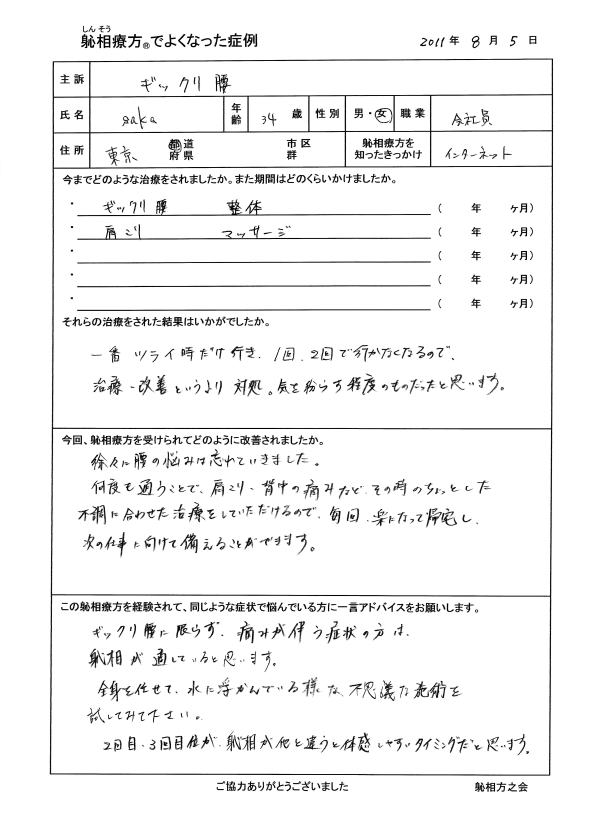 しんそう
躰相療方®でよくなった症例 2011年 8月 5日
主訴 ギックリ腰
氏名 saka 年齢 34 歳 性別 男・女 職業 会社員
住所 東京 都道府県 市区群 躰相療方を知ったきっかけ インターネット
今までどのような治療をされましたか。また期間はどのくらいかけましたか。
・ ギックリ腰 整体 ( 年 ヶ月)
・ 肩こり マッサージ ( 年 ヶ月)
・ ( 年 ヶ月)
・ ( 年 ヶ月)
・ ( 年 ヶ月)
それらの治療をされた結果はいかがでしたか。
一番ツライ時だけ行き、1回、2回で行かなくなるので、
治療・改善というより対処。気を紛らす程度のものだったと思います。
今回、躰相療方を受けられてどのように改善されましたか。
徐々に腰の悩みは忘れていきました。
何度も通うことで、肩こり、背中の痛みなど、その時のちょっとした
不調に合わせた治療をしていただけるので、毎回、楽になって帰宅し、
次の仕事に向けて備えることができます。
この躰相療方を経験されて、同じような症状で悩んでいる方に一言アドバイスをお願いします。
ギックリ腰に限らず、痛みが伴う症状の方は、
躰相が適していると思います。
全身を任せて、水に浮かんでいる様な不思議な施術を
試してみて下さい。
2回目、3回目位が、躰相が他と違うと体感しやすいタイミングだと思います。
ご協力ありがとうございました 躰相方之会